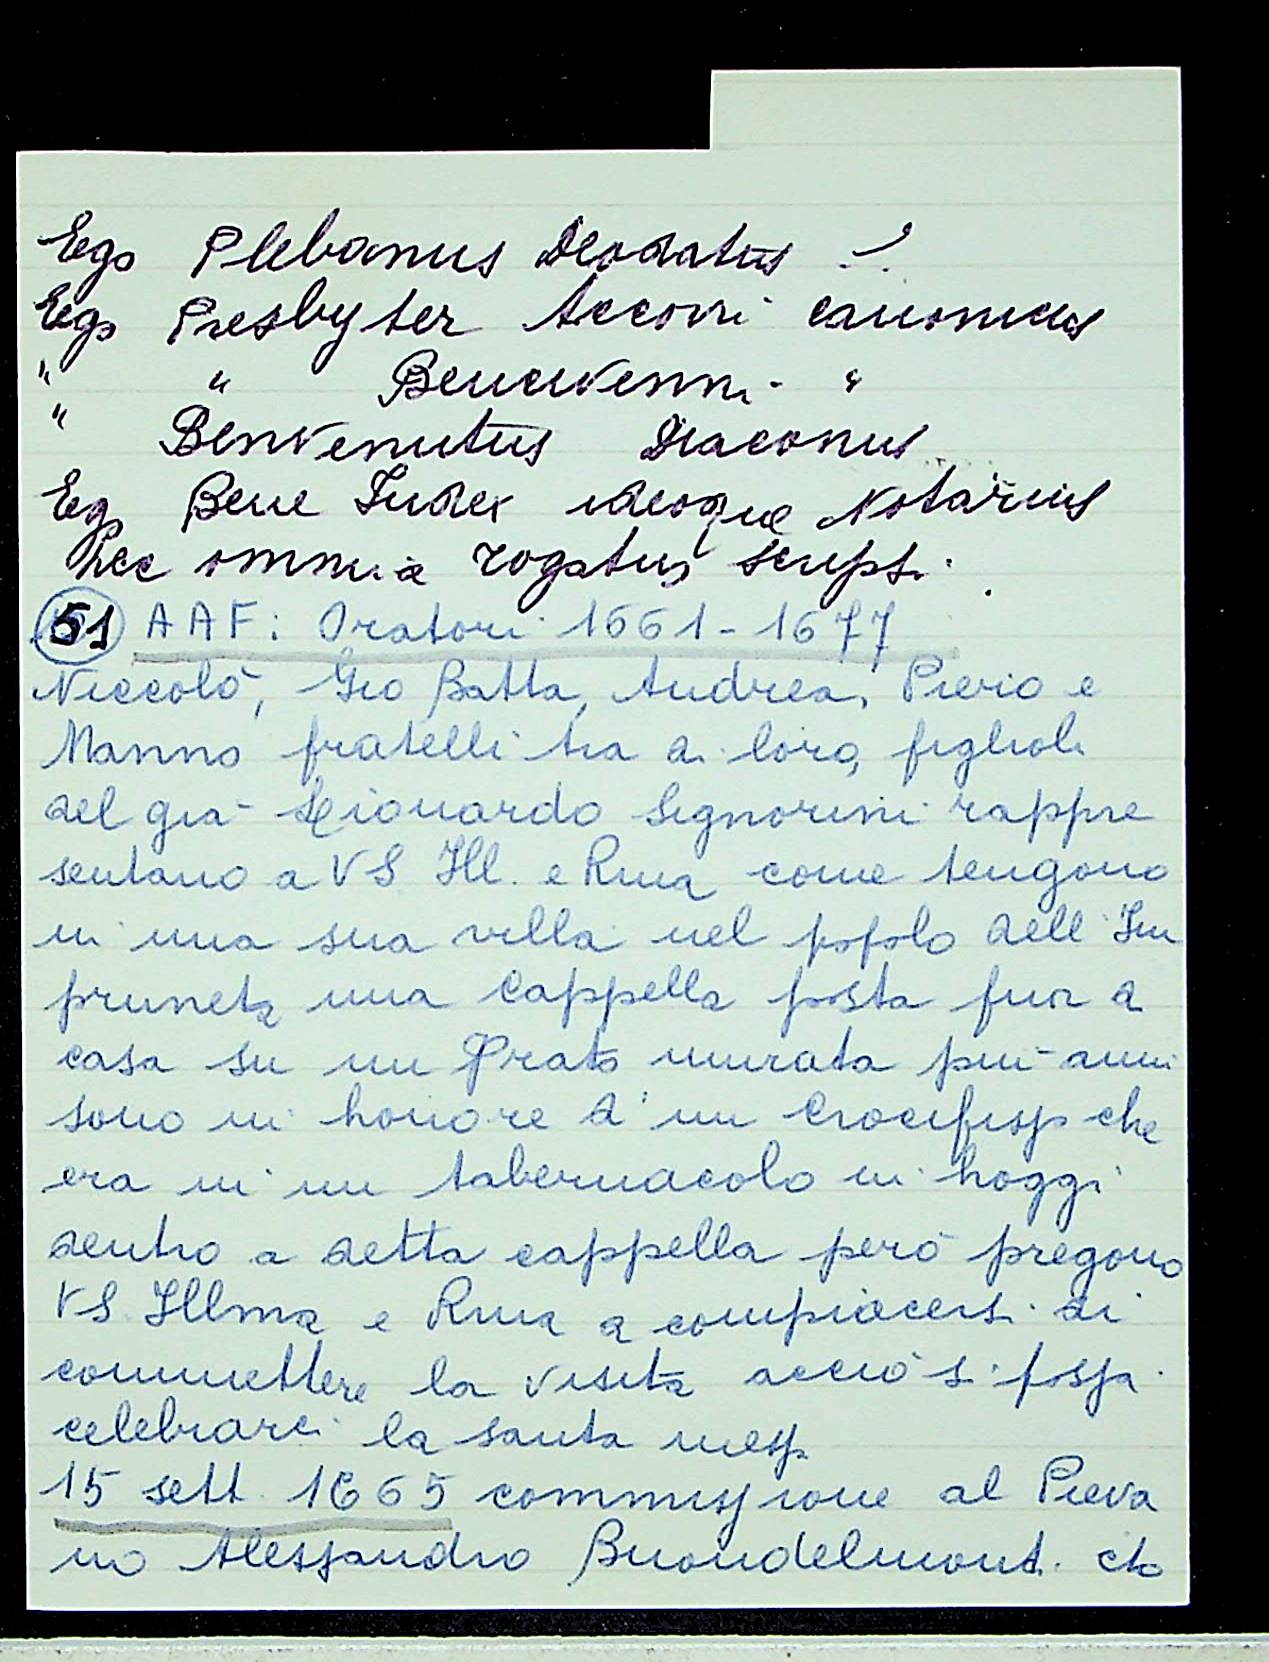 Ego Plebanus Deodatus -!.
Ego Presbyter Accorri canonicus
" " Benervenni - "
" Benvenutus Diaconus
Ego Bene Iudex ideoque Notarius
hec omnia rogatus scripsi.
51 AAF: Oratori 1661-1677
Niccolò, Gio Batta, Andrea, Piero e
Manno fratelli tra di loro, figlioli
del già Lionardo Signorini rappre
sentano a VS Ill. e Rma come tengono
in una sua villa nel popolo dell'Im
pruneta una Cappella posta fuor di
casa su un Prato murata più anni
sono in honore d'un Crocifisso che
era in un tabernacolo in hoggi
dentro a detta cappella però pregono
VS Illma e Rma a compiacersi di
commettere la visita acciò si possa
celebrarci la santa messa
15 sett. 1665 commissione al Pieva
no Alessandro Buondelmonti cto